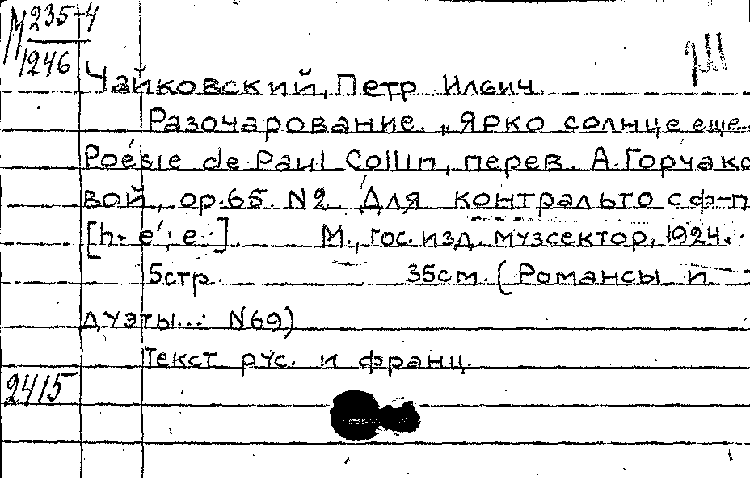 М 235-4
1246
Чайковский, Петр Ильич
Разочарование. „Ярко солнце еще
Poésie de Paul Collin, перев. А. Горчако
вой, ор. 65 N2. Для контральто с ф-п
[h-e'; e- ] М., гос. изд. музсектор, 1924.
5 стр. 35 см. (Романсы и
дуэты... N69)
Текст рус. и франц.
2415